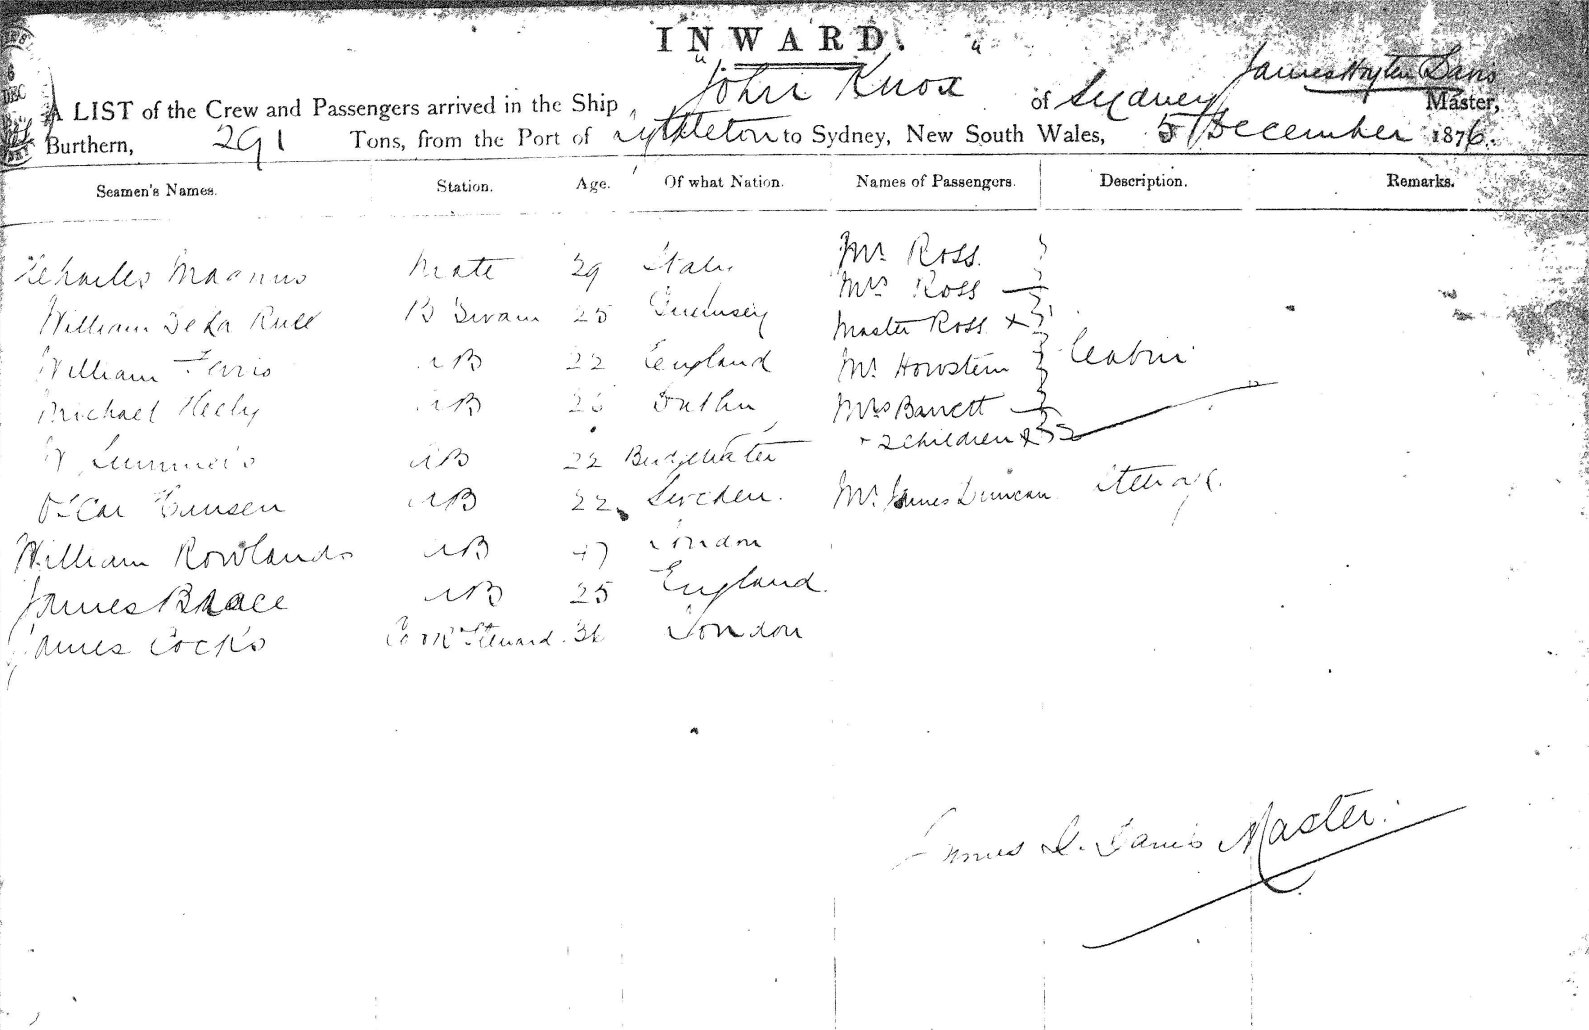 INWARD.
A LIST of the Crew and Passengers arrived in the Ship "John Knox" of Sydney James Davis Master,
Burthern, 291 Tons, from the Port of Lyttleton to Sydney, New South Wales, 5 December 1876.
Seamen's Names. Station. Age. Of what Nation. Names of Passengers. Description. Remarks.
Charles Magnus Mate 29 Italy Mr Ross
Mrs Ross
William De La Rue B Swain 25 Guernsey Master Ross x
William AB 22 England Mr Howstein Cabin
Michael Heely AB Dublin Mrs Barrett
+ 2 children x
W AB 22 Bridgewater
Oscar Hansen AB 22 Sweden. Mr James Duncan Steerage.
William Rowlands AB 47 London
James Brace AB 25 England.
James Cocks Cook Steward. 36 London
James Davis Master.
DEC